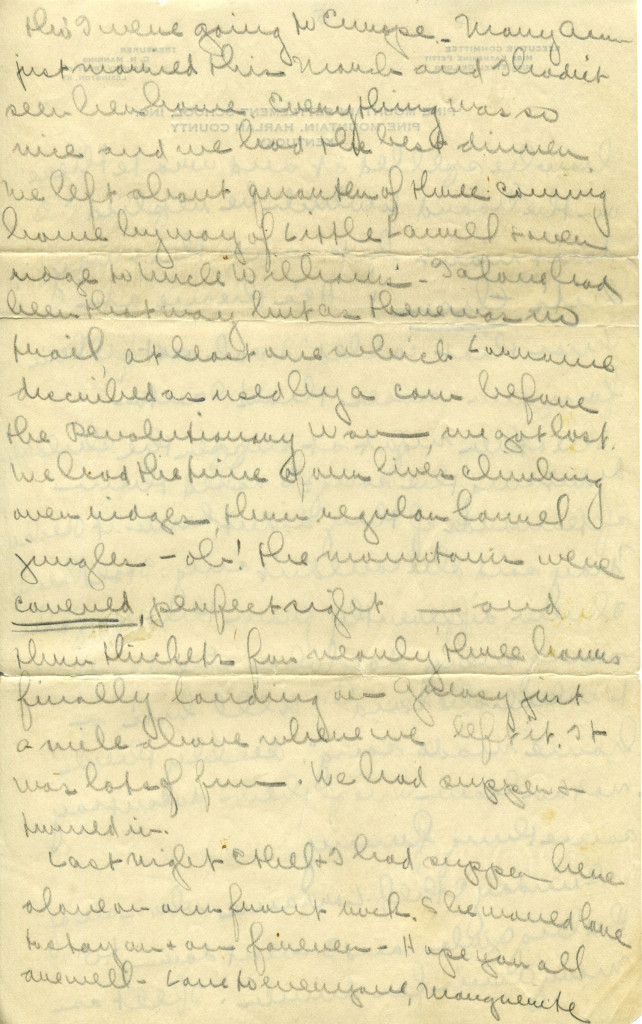 tho' I were going to Europe. Mary Ann
just married this March and I hadn't
seen her home. Everything was so
nice and we had the best dinner.
We left about quarter of three coming
home by way of Little Laurel + over
ridge to Uncle William's - I alone had
been that way but as there was no
trail, at least one which Lorraine
described as used by a cow before
the Revolutionary War -, we got lost.
We had the time of our lives climbing
over ridges, thru regular laurel
jungles - oh! the mountains were
covered, perfect sight - and
thru thickets for nearly three hours
finally landing on Greasy just
a mile above where we left it. It
was lots of fun. We had supper +
turned in.
Last night Ethel + I had supper here
alone on our front rock. She would love
to stay on + on forever - Hope you all
are well - Love to everyone, Marguerite
EXECUTIVE COMMITTEE
TREASURER
PINE MOUNTAIN SETTLEMENT SCHOOL, INC.
PINE MOUNTAIN, HARLAN COUNTY
KENTUCKY